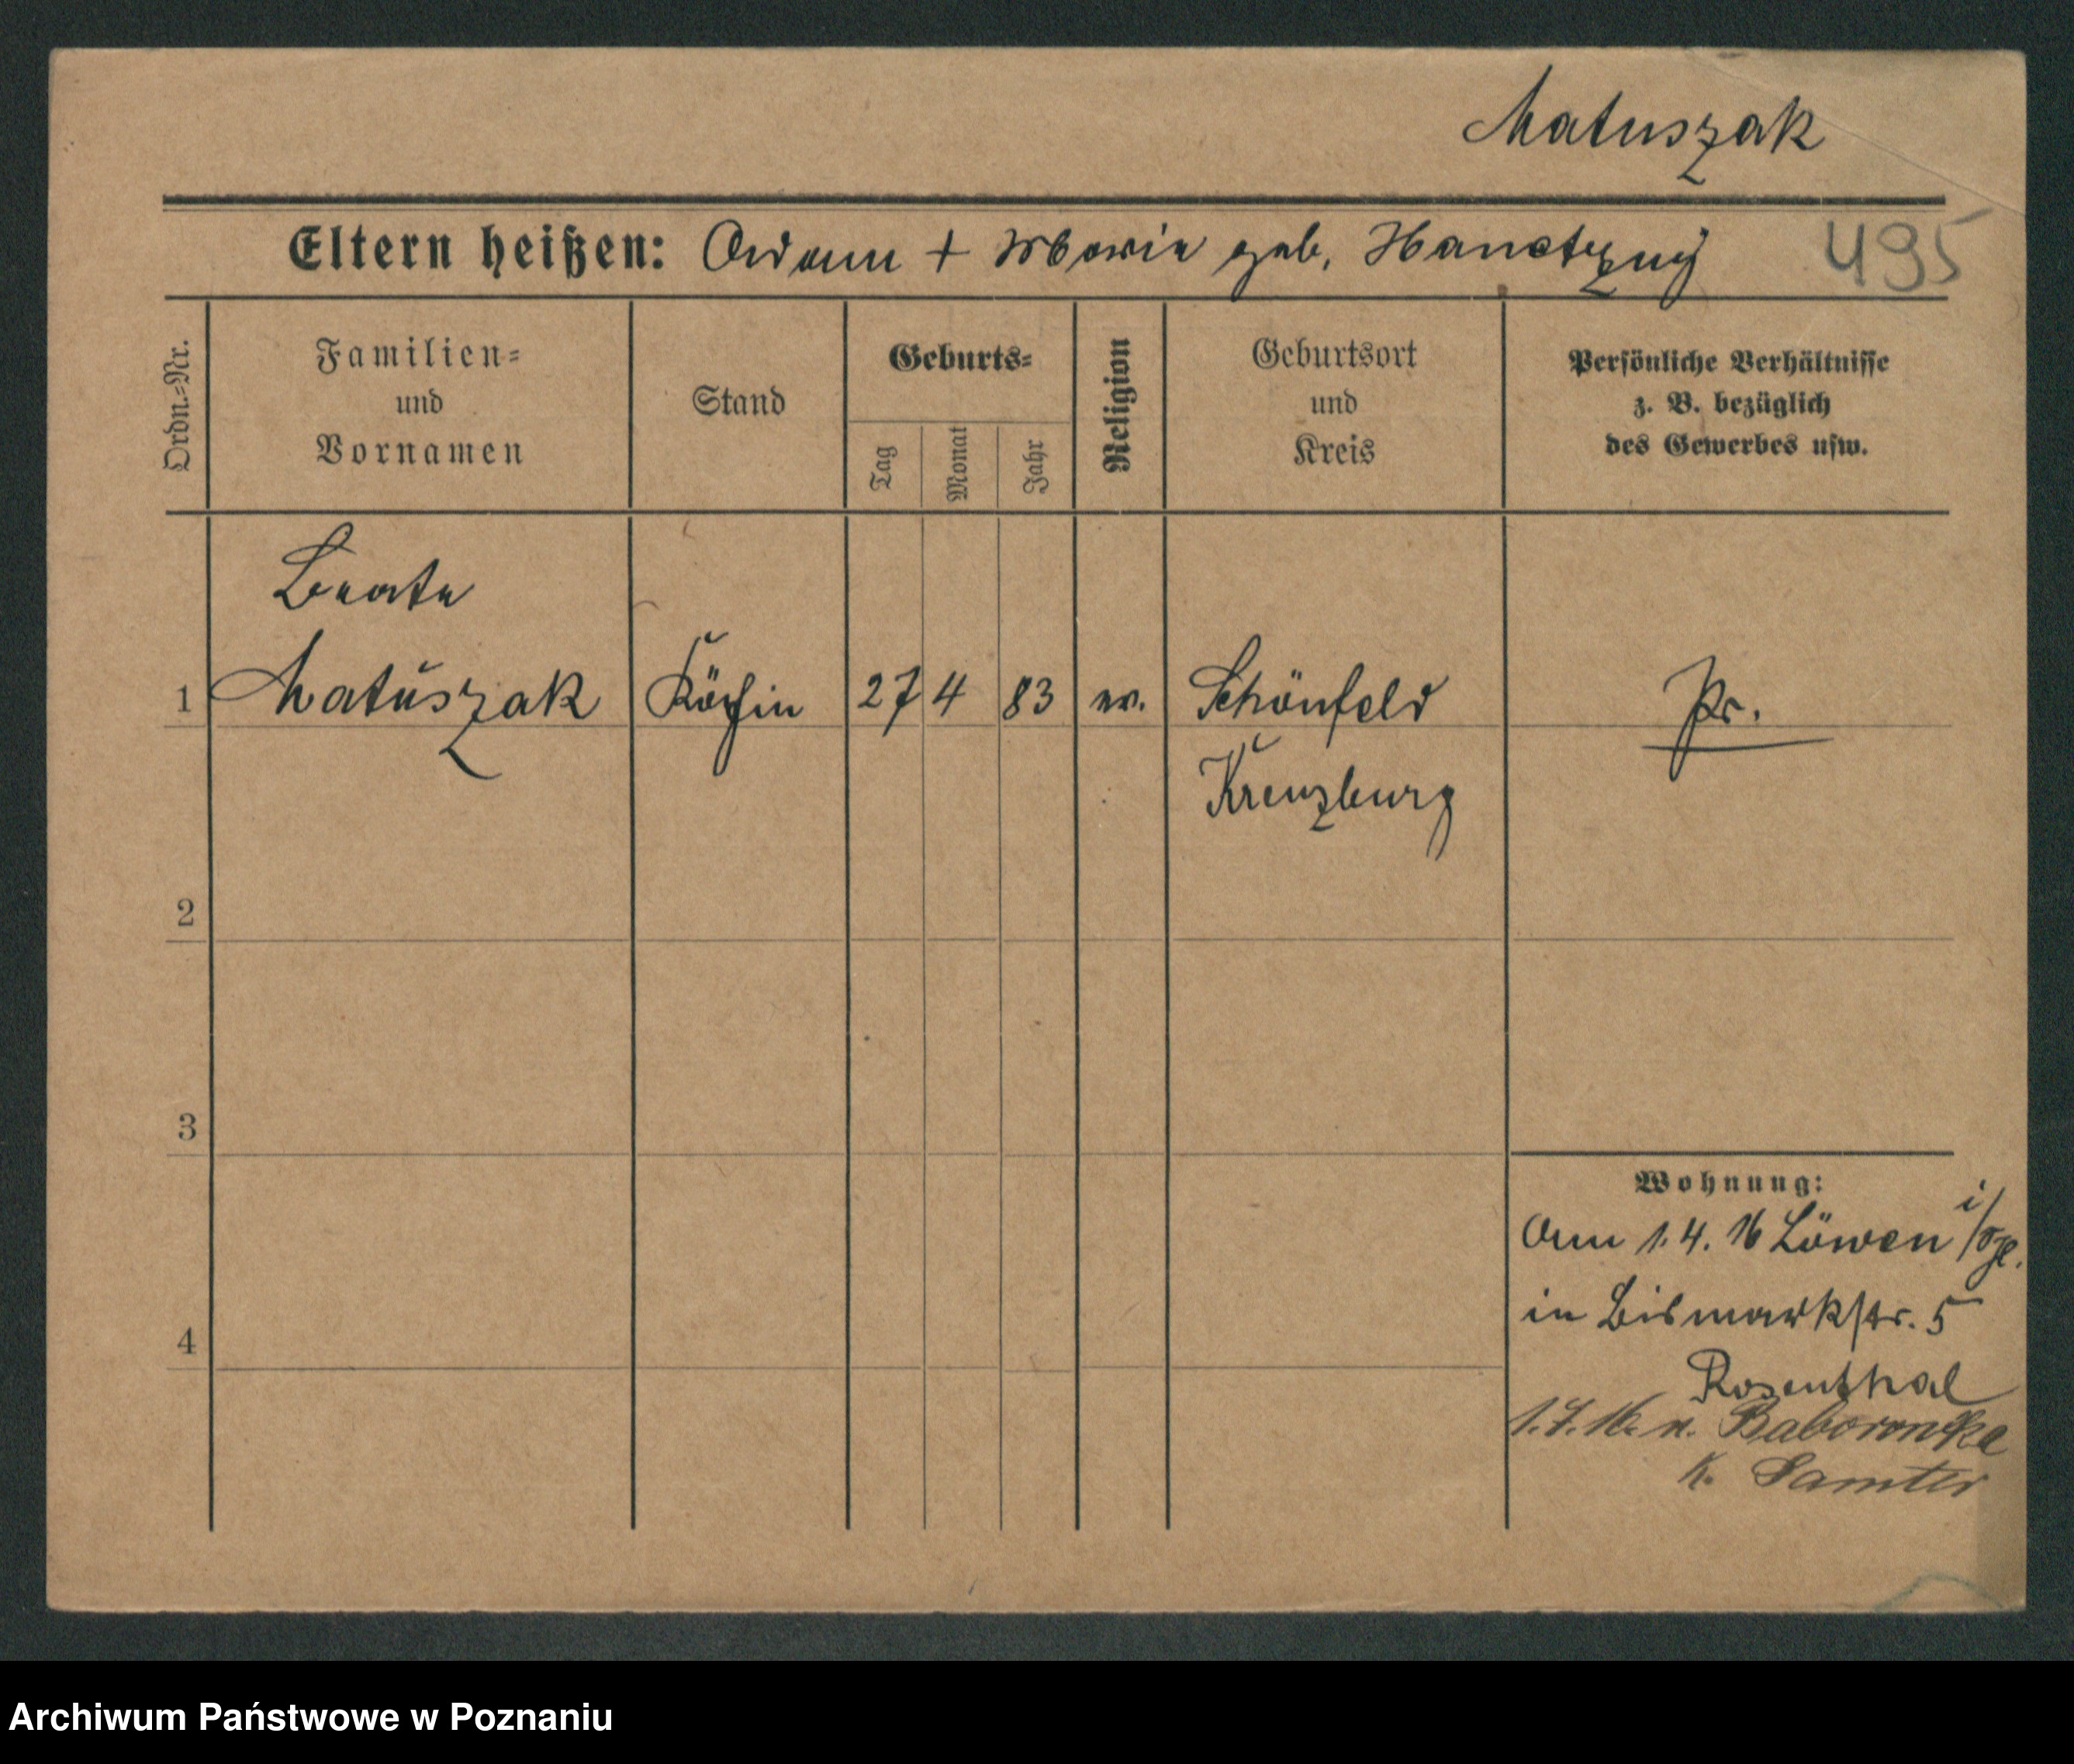 Matuszak
Eltern heißen: Adam + Maria geb. Hanctzug
495
Ordn.=Nr.
Familien=
und
Vornamen
Stand
Geburts=
Tag
Monat
Jahr
Religion
Geburtsort
und
Kreis
Persönliche Verhältnisse
z. B. bezüglich
des Gewerbes usw.
Beate
1 Matuszak Köchin 27 4 83 ev. Schönfeld Pr.
Kreuzburg
2
3
4
Wohnung:
Am 1. 4. 16 Löwen i/
in Bismarkstr. 5
Rosenthal
1. 7. 16. n. Baborowke
K. Samter
Archiwum Państwowe w Poznaniu